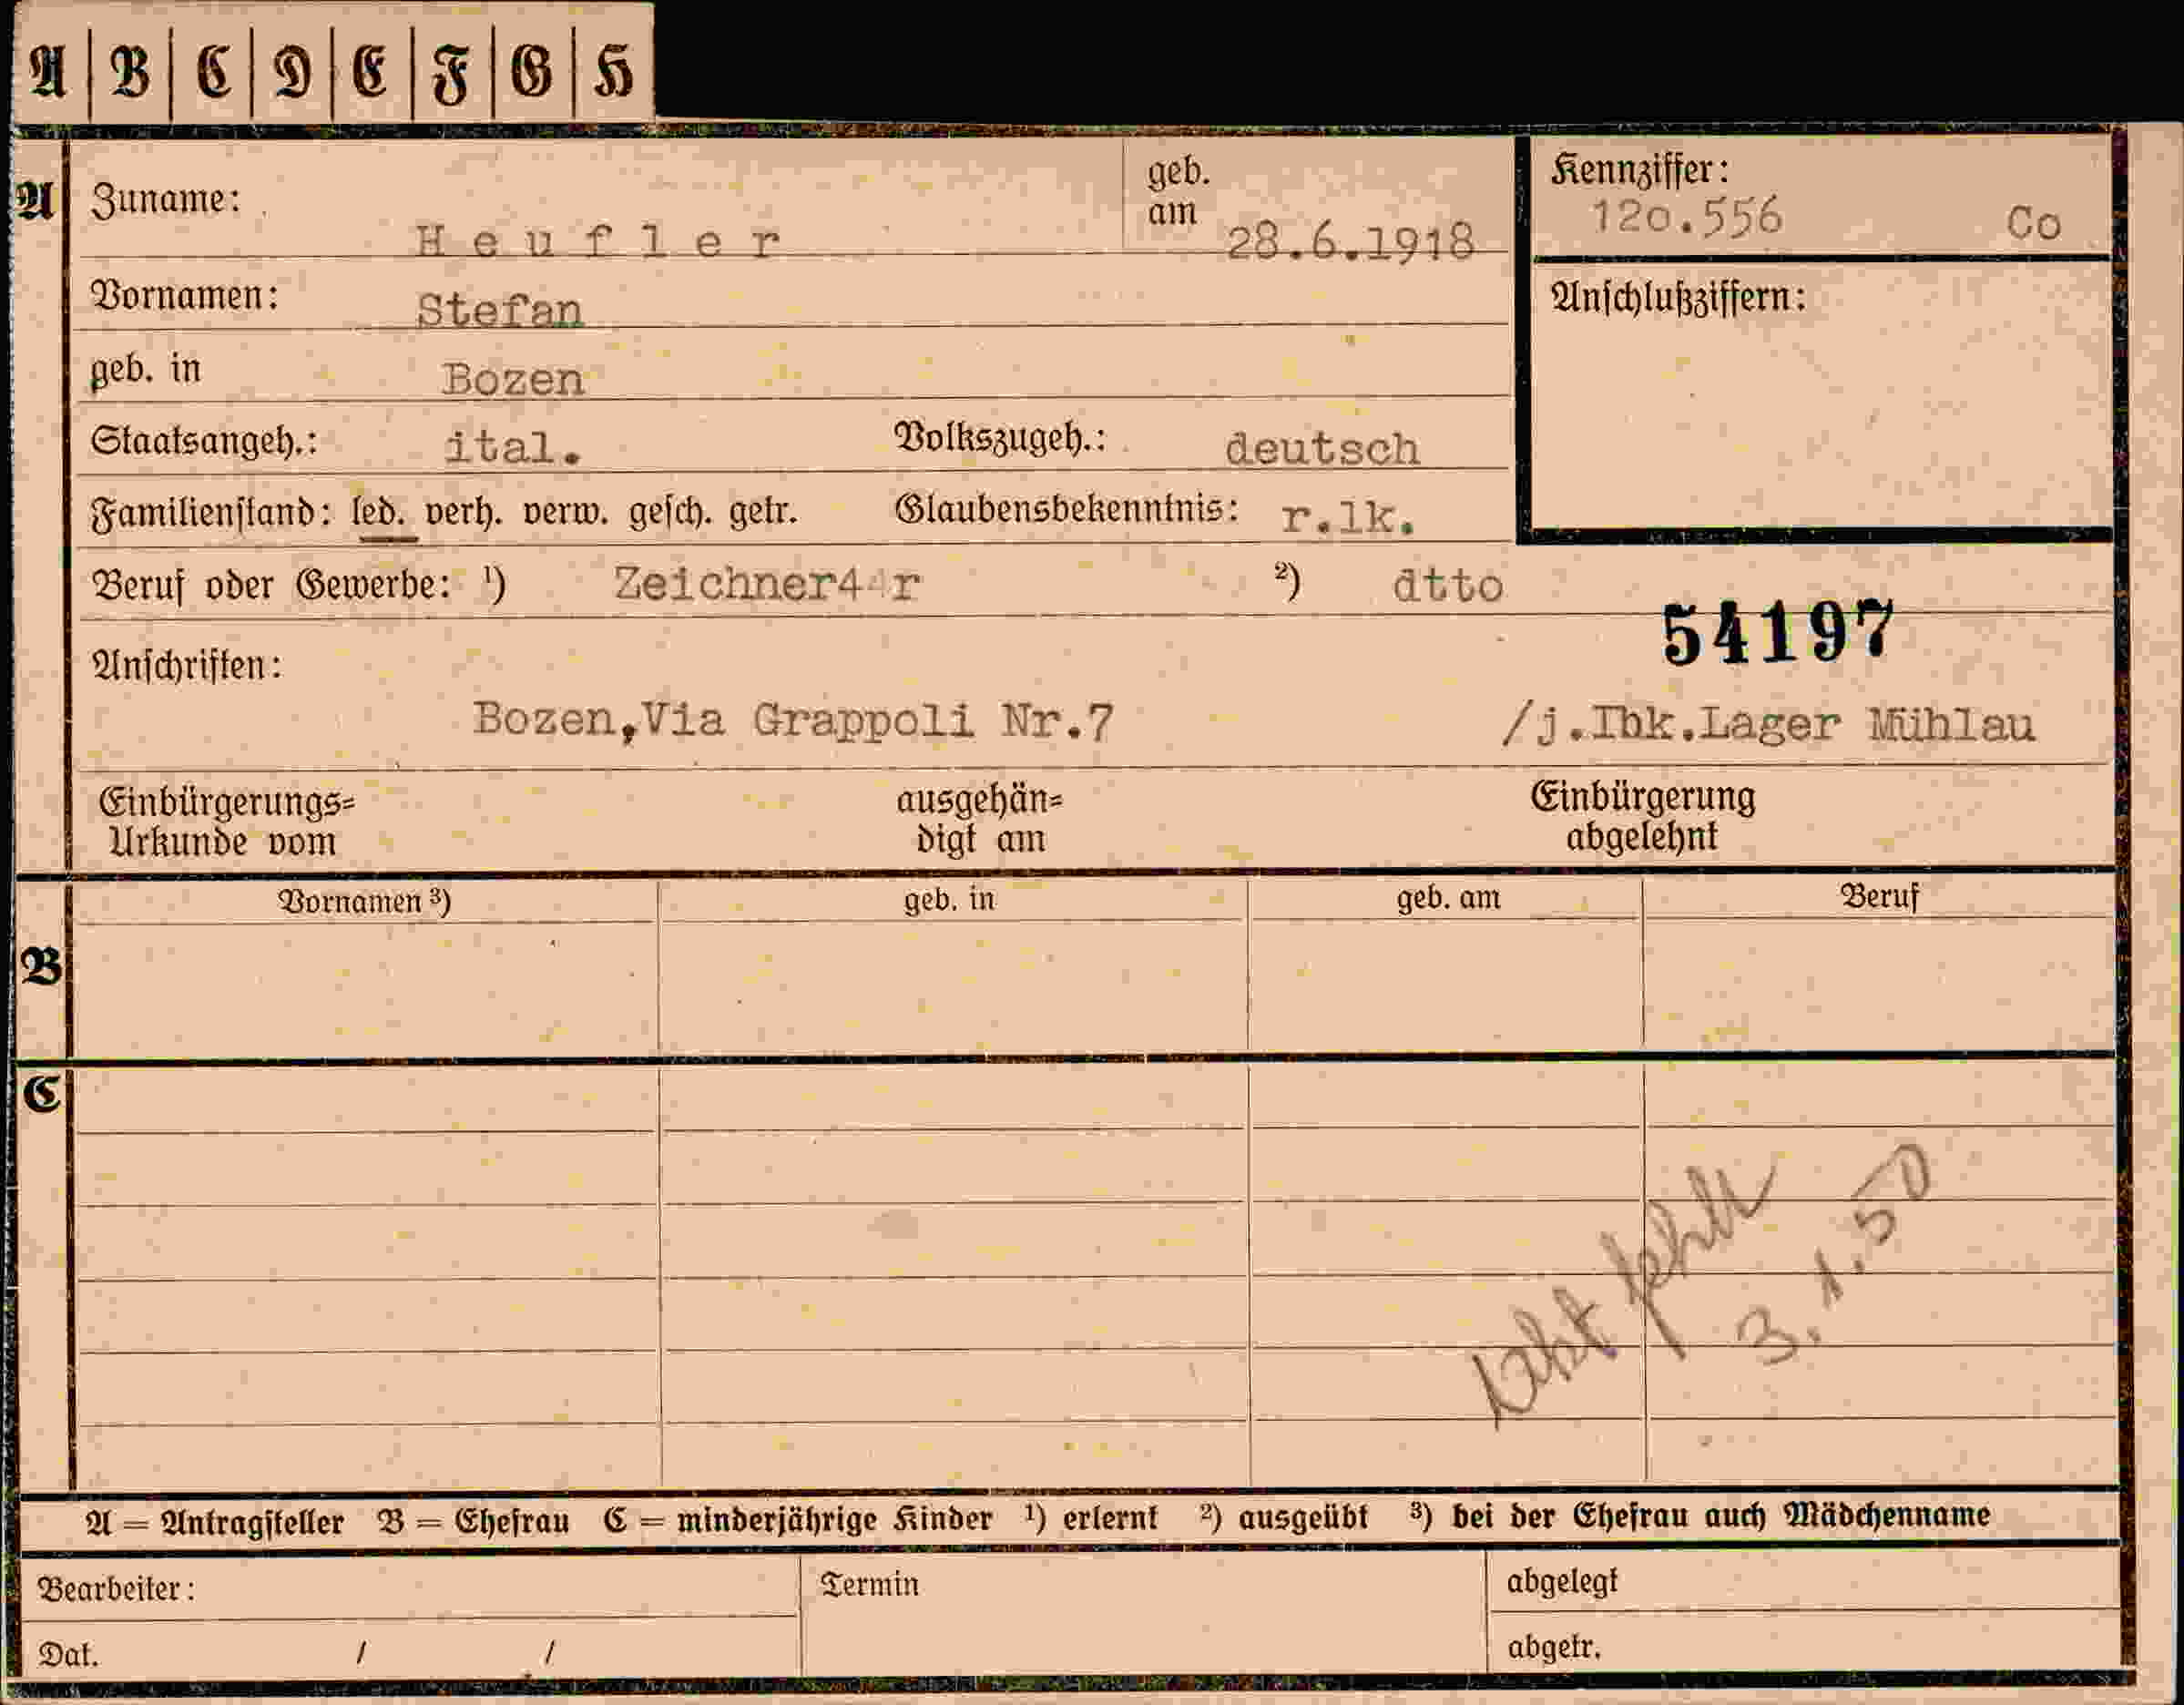 A | B | C | D | E | F | G | H
A Zuname: Heufler geb. am 28.6.1918 Kennziffer: 12o.556 Co
Vornamen: Stefan Anschlußziffern:
geb. in Bozen
Staatsangeh.: ital. Volkszugeh.: deutsch
Familienstand: led. verh. verw. gesch. getr. Glaubensbekenntnis: r.lk.
Beruf oder Gewerbe: ¹) Zeichner44r ²) dtto
54197
Anschriften:
Bozen,Via Grappoli Nr.7 /j.Ibk.Lager Mühlau
Einbürgerungs= ausgehän= Einbürgerung
Urkunde vom digt am abgelehnt
Vornamen ³) geb. in geb. am Beruf
B
C
Akt fehlt
3.1.50
A = Antragsteller B = Ehefrau C = minderjährige Kinder ¹) erlernt ²) ausgeübt ³) bei der Ehefrau auch Mädchenname
Bearbeiter: Termin abgelegt
Dat. / / abgetr.